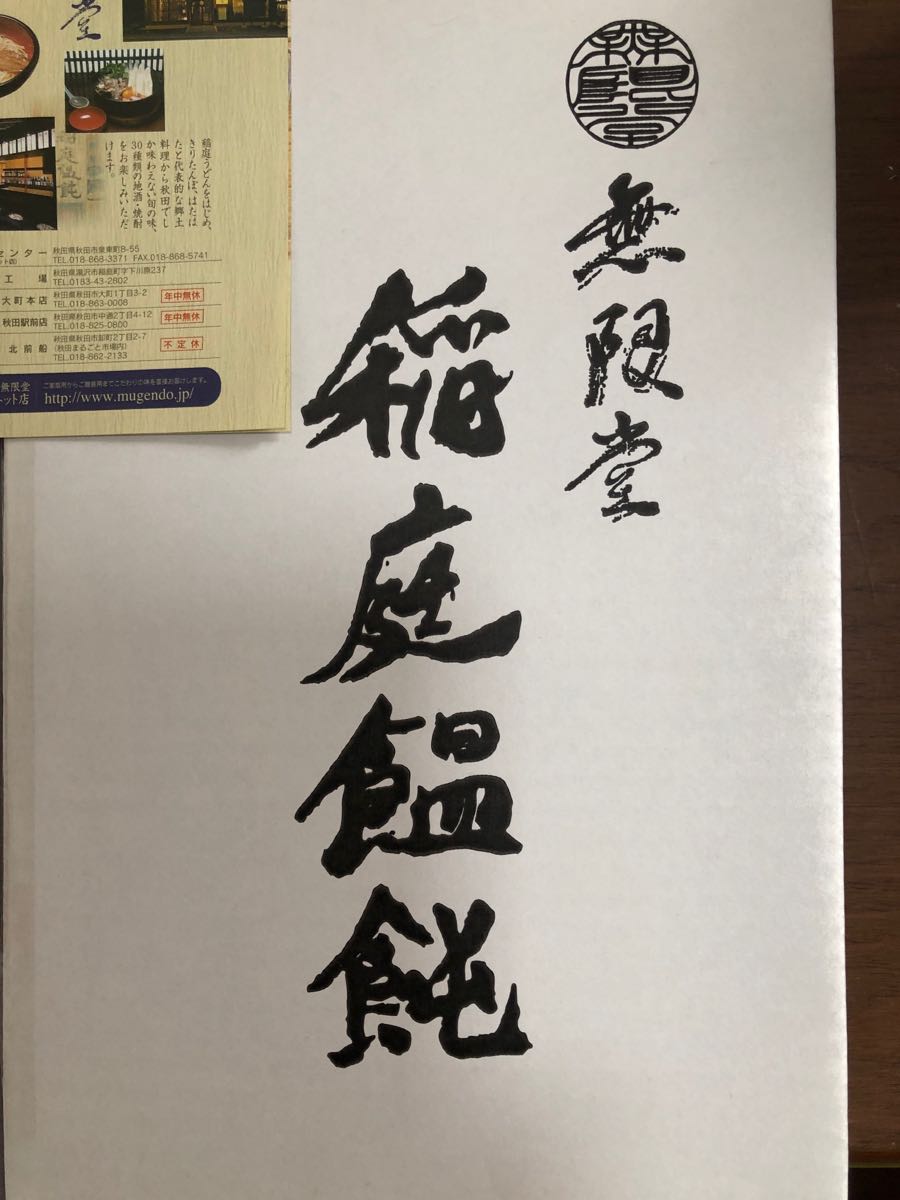 無限堂
稲庭饂飩
堂
稲庭うどんをはじめ、
きりたんぽ、はたは
たと代表的な郷土
料理から秋田でし
か味わえない旬の味、
30種類の地酒・焼酎
をお楽しみいただ
けます。
センター 秋田県秋田市泉東町8-55
TEL.018-868-3371 FAX.018-868-5741
工場 秋田県湯沢市稲庭町字下川原237
TEL.0183-43-2802
大町本店 秋田県秋田市大町1丁目3-2 年中無休
TEL.018-863-0008
秋田駅前店 秋田県秋田市中通2丁目4-12 年中無休
TEL.018-825-0800
北前船 秋田県秋田市卸町2丁目2-7 不定休
(秋田まるごと市場内)
TEL.018-862-2133
無限堂 ご家庭用からご贈答用までこだわりの味を直接お届けします。
ネット店 http://www.mugendo.jp/